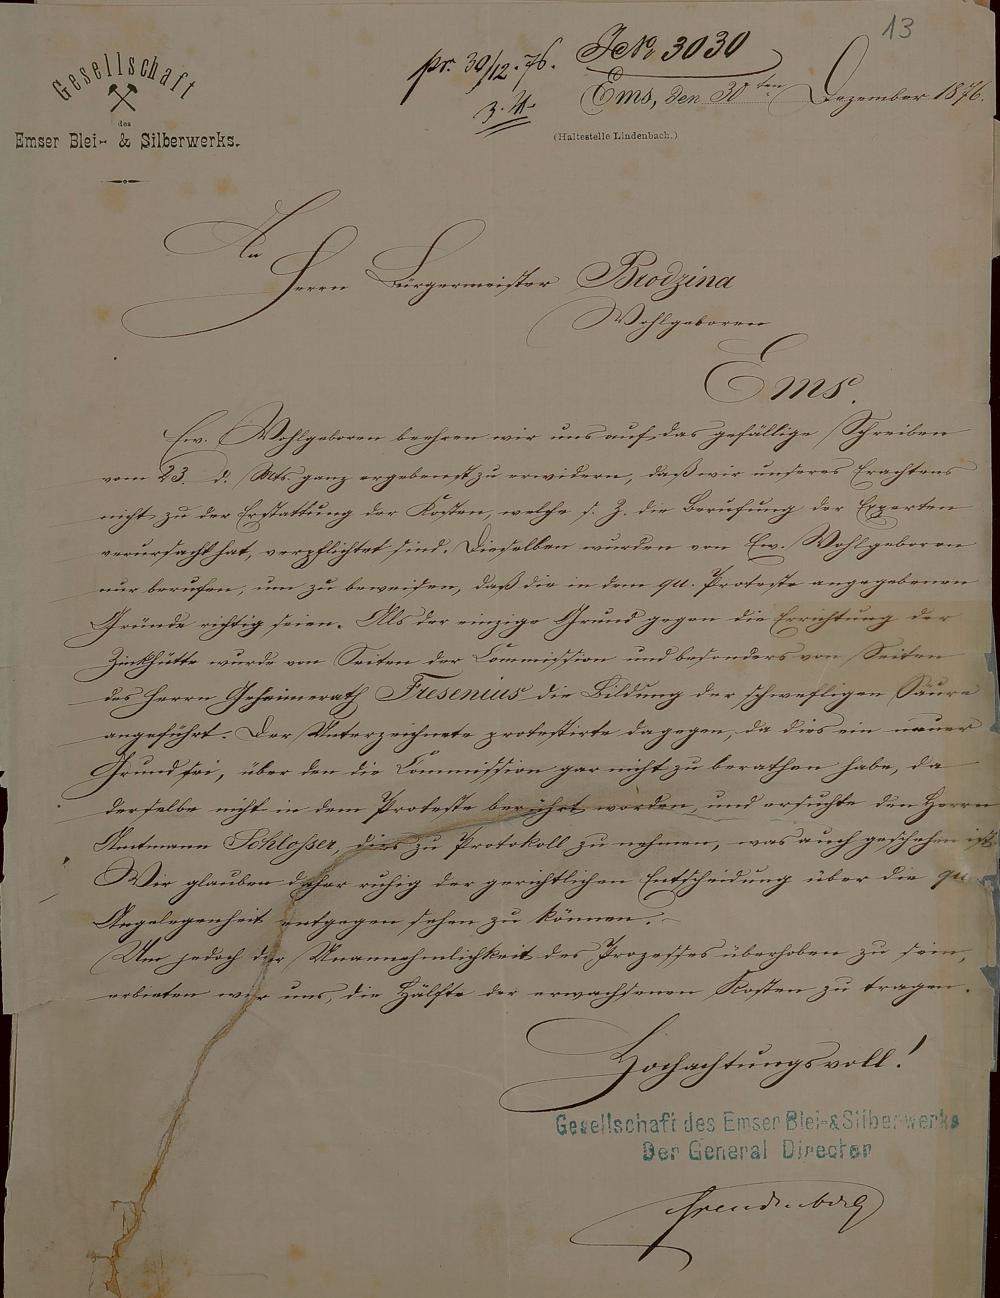 13
pr. 30/12. 76. JNo. 3030
Gesellschaft
des
Emser Blei- & Silberwerks.
Ems, den 30ten Dezember 1876.
(Haltestelle Lindenbach.)
An
Herrn Bürgermeister Brodzina
Wohlgeboren
Ems.
Ew. Wohlgeboren beehren wir uns auf das gefällige Schreiben
vom 23. d. Mts. ganz ergebenst zu erwidern, daß wir unseres Erachtens
nicht zu der Erstattung der Kosten, welche s. Z. die Berufung der Experten
verursacht hat, verpflichtet sind. Dieselben wurden von Ew. Wohlgeboren
nur berufen, um zu beweisen, daß die in dem qu. Proteste angegebenen
Gründe richtig seien. Als der einzige Grund gegen die Errichtung der
Zinkhütte wurde von Seiten der Commission und besonders von Seiten
des Herrn Geheimerath Fresenius die Bildung der schwefligen Säure
angeführt. Der Unterzeichnete protestirte dagegen, da dies ein neuer
Grund sei, über den die Commission gar nicht zu berathen habe, da
derselbe nicht in dem Proteste berührt worden, und ersuchte den Herrn
Amtmann Schlosser, dies zu Protokoll zu nehmen, was auch geschehen ist.
Wir glauben daher ruhig der gerichtlichen Entscheidung über die qu
Angelegenheit entgegen sehen zu können.
Um jedoch der Unannehmlichkeit des Prozesses überhoben zu sein,
erbieten wir uns, die Hälfte der erwachsenen Kosten zu tragen.
Hochachtungsvoll!
Gesellschaft des Emser Blei- & Silberwerks
Der General Director
Freudenberg